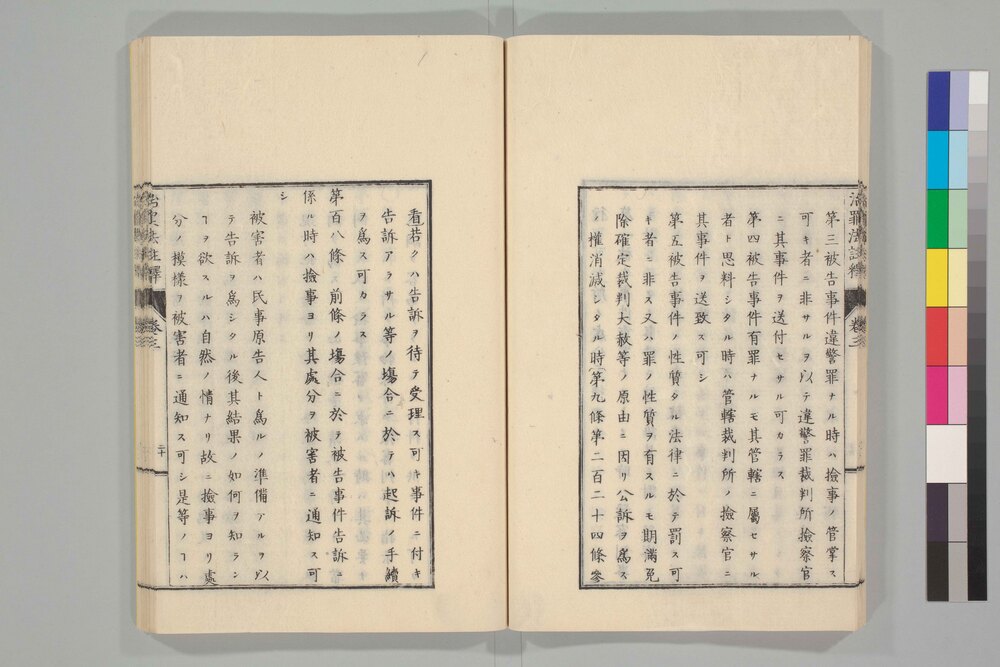 第三被告事件違警罪ナル時ハ撿事ノ管掌ス
可キ者ニ非サルヲ以テ違警罪裁判所撿察官
ニ其事件ヲ送付セサル可カラス
第四被告事件有罪ナルモ其管轄ニ屬セサル
者ト思料シタル時ハ管轄裁判所ノ撿察官ニ
其事件ヲ送致ス可シ
第五被告事件ノ性質タル法律ニ於テ罰ス可
キ者ニ非ス又ハ罪ノ性質ヲ有スルモ期滿免
除確定裁判大赦等ノ原由ニ因リ公訴ヲ爲ス
權消滅シタル時(第九條第二百二十四條參
看若クハ告訴ヲ待テ受理ス可キ事件ニ付キ
告訴アラサル等ノ塲合ニ於テハ起訴ノ手續
ヲ爲ス可カラス
第百八條 前條ノ塲合ニ於テ被告事件告訴ニ
係ル時ハ撿事ヨリ其處分ヲ被害者ニ通知ス可
シ
被害者ハ民事原告人ト爲ルノ準備アルヲ以
テ告訴ヲ爲シタル後其結果ノ如何ヲ知ラン
ヿヲ欲スルハ自然ノ情ナリ故ニ撿事ヨリ處
分ノ摸樣ヲ被害者ニ通知ス可シ是等ノヿハ
治罪法註釋
卷三
二十